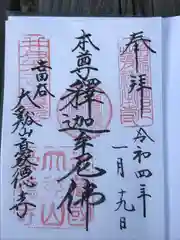 奉拝
令和四年
一月十九日
本尊釋迦牟尼佛
世田谷
大谿山豪徳寺